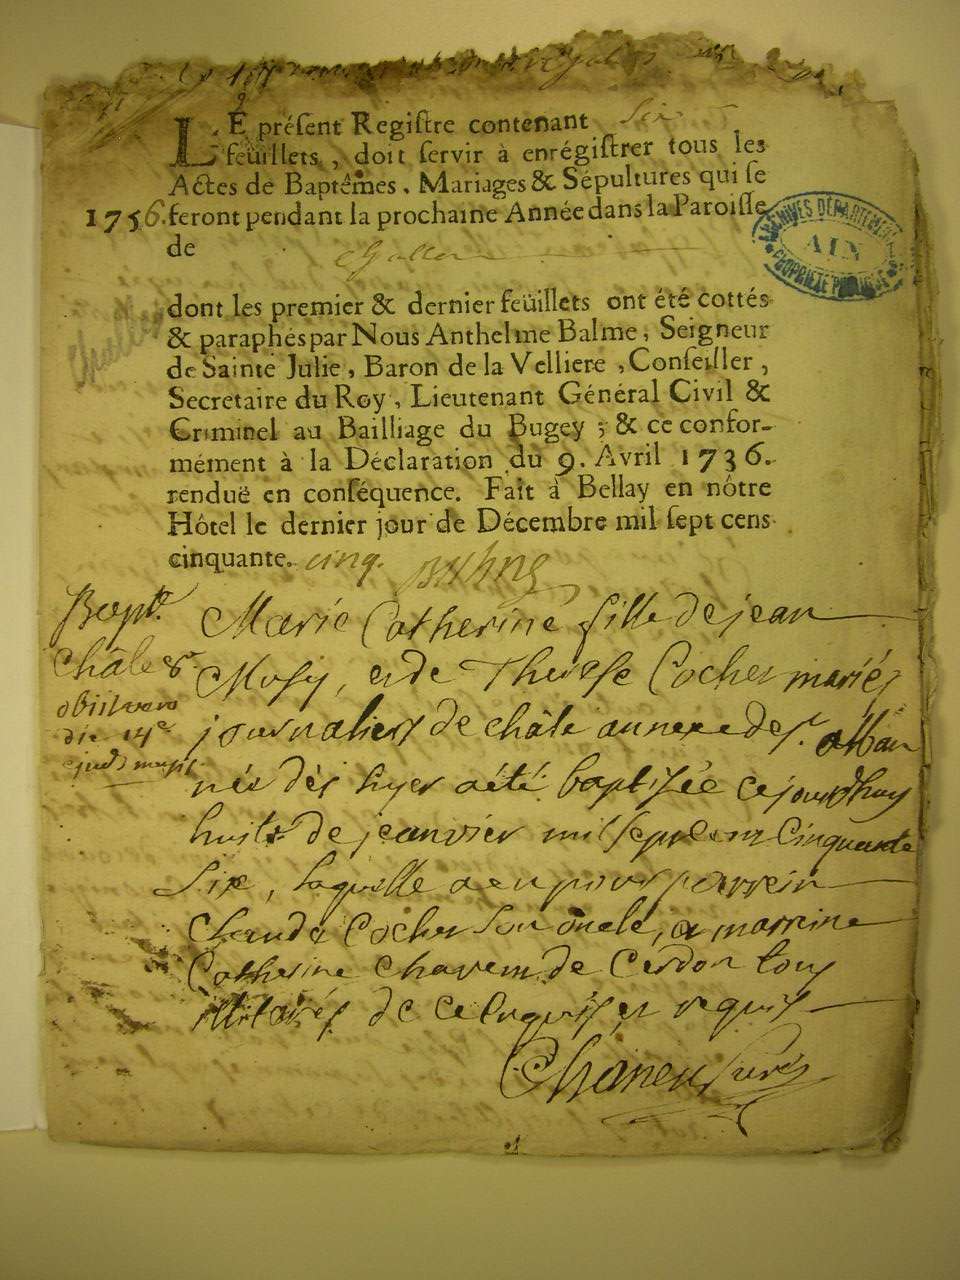 LE présent Registre contenant Six
feüillets, doit servir à enrégistrer tous les
Actes de Baptêmes, Mariages & Sépultures qui se
1756. feront pendant la prochaine Année dans la Paroisse
de
ARCHIVES DÉPARTEMENTALES
AIN
PROPRIÉTÉ PUBLIQUE
dont les premier & dernier feüillets ont été cottés
& paraphés par Nous Anthelme Balme, Seigneur
de Sainte Julie, Baron de la Velliere, Conseiller,
Secretaire du Roy, Lieutenant Général Civil &
Criminel au Bailliage du Bugey ; & ce confor-
mément à la Déclaration du 9. Avril 1736.
renduë en conséquence. Fait à Bellay en nôtre
Hôtel le dernier jour de Décembre mil sept cens
cinquante. cinq.
Bapt.
châle
obiit vero
die 14ᵉ
ejusd. mensis
Marie Catherine fille de jean
Musy, et de Therese Cocher mariés
journaliers de châle annexe de st. alban
née dès hyer a été baptisée ce jourdhuy
huit de jeanvier mil sept cent cinquante
six, laquelle a eu pour parrein
Claude Cocher son oncle, et marreine
Catherine Chavent de Cerdon tous
illitarés de ce enquis et requis
Chanen Curé